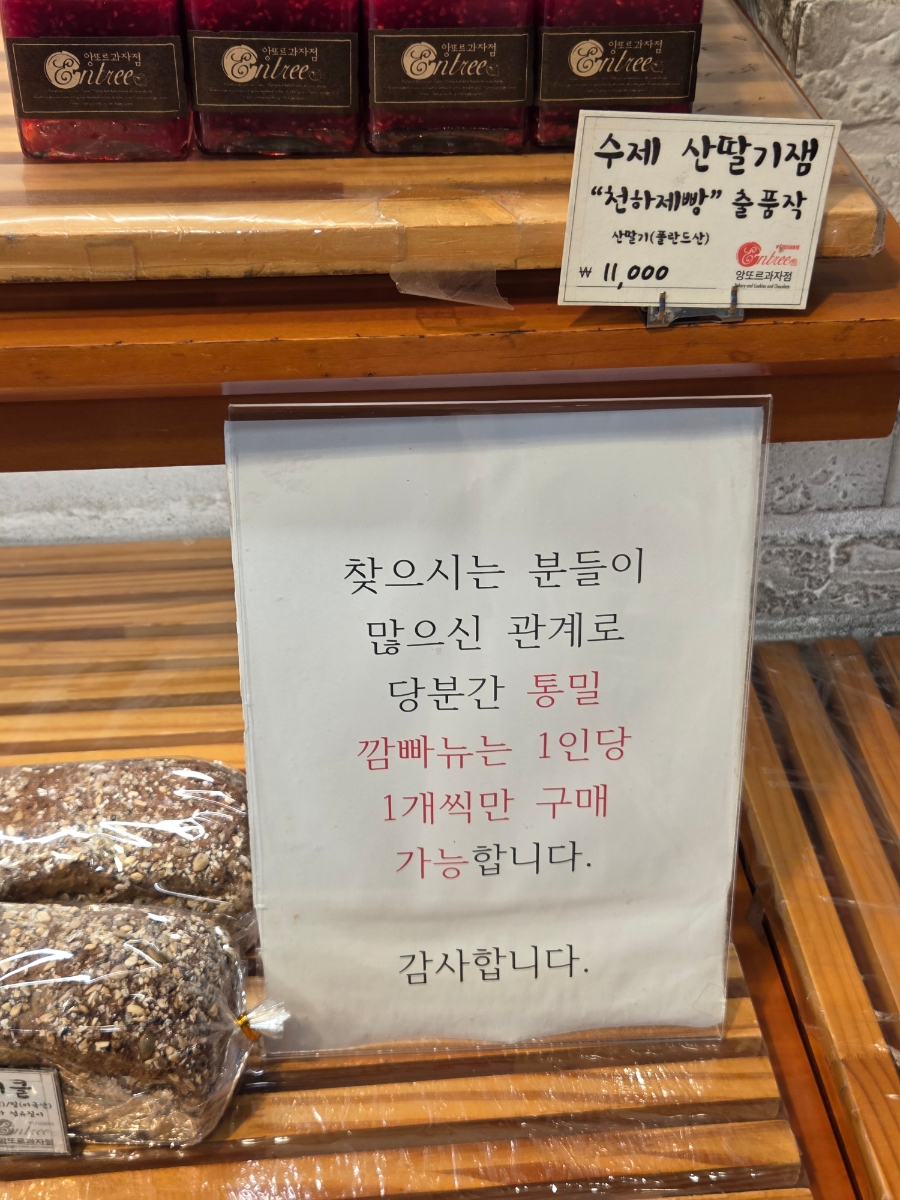 앙또르과자점
Entree
앙또르과자점
Entree
앙또르과자점
Entree
앙또르과자점
Entree
수제 산딸기잼
“천하제빵” 출품작
산딸기(폴란드산)
₩ 11,000
Entree
앙또르과자점
Bakery and Cookies and Chocolate
찾으시는 분들이
많으신 관계로
당분간 통밀
깜빠뉴는 1인당
1개씩만 구매
가능합니다.
감사합니다.
Entree
앙또르과자점